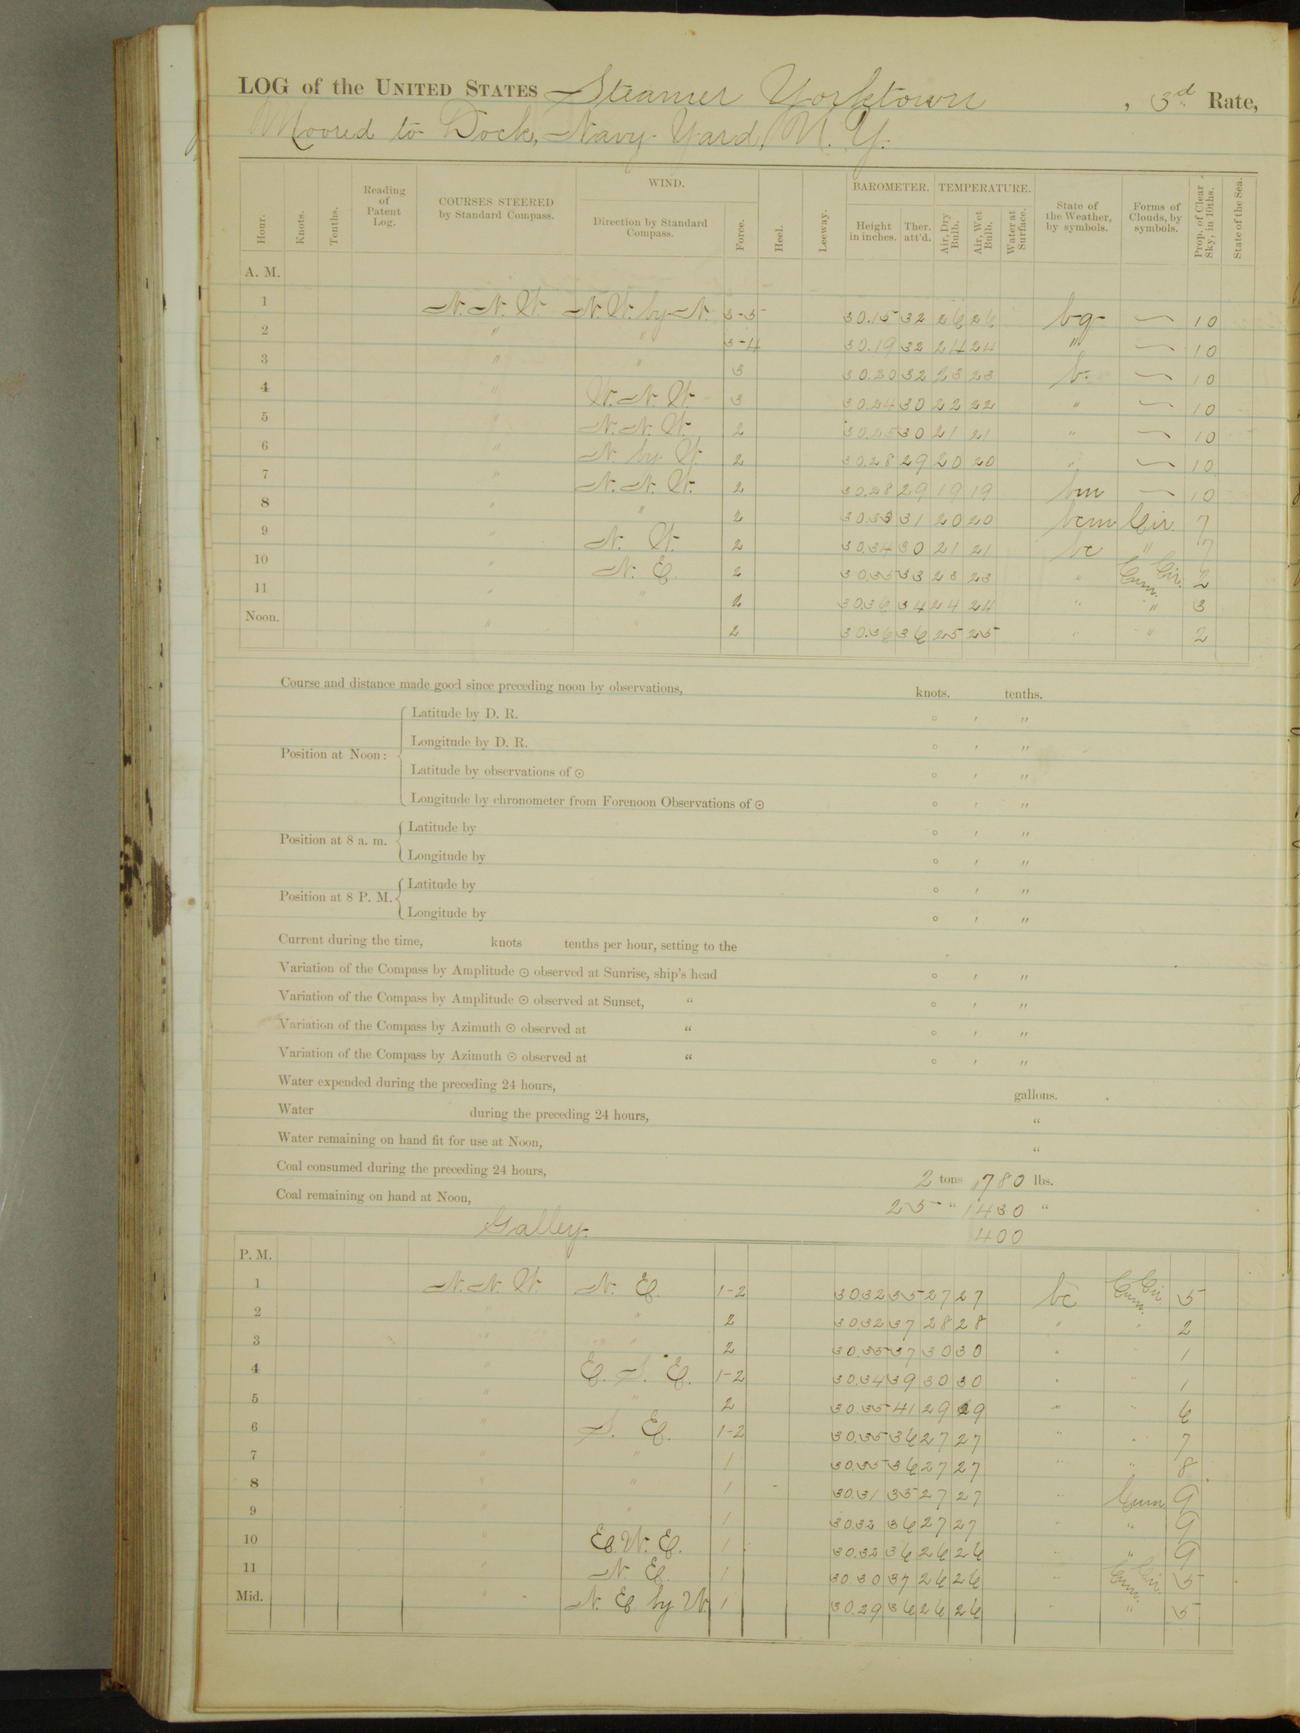 LOG of the UNITED STATES Steamer Yorktown , 3d Rate,
Moored to Dock, Navy-Yard, N. Y.
Hour. Knots. Tenths. Reading of Patent Log. COURSES STEERED by Standard Compass. WIND. Direction by Standard Compass. Force. Heel. Leeway. BAROMETER. Height in inches. Ther. att'd. TEMPERATURE. Air, Dry Bulb. Air, Wet Bulb. Water at Surface. State of the Weather, by symbols. Forms of Clouds, by symbols. Prop. of Clear Sky, in 10ths. State of the Sea.
A. M.
1 N. N. W. N. W. by N. 3-5 30.15 32 26 26 bq 10
2 " " 3-4 30.19 32 24 24 " 10
3 " " 3 30.20 32 23 23 b. 10
4 " W. N. W. 3 30.24 30 22 22 " 10
5 " N. N. W. 2 30.25 30 21 21 " 10
6 " N. by W. 2 30.28 29 20 20 " 10
7 " N. N. W. 2 30.28 29 19 19 bm 10
8 " " 2 30.33 31 20 20 bcm Cir. 7
9 " N. W. 2 30.34 30 21 21 bc " 7
10 " N. E. 2 30.35 33 23 23 " Cir. Cum. 2
11 " " 2 30.36 34 24 24 " " 3
Noon. " " 2 30.36 36 25 25 " " 2
Course and distance made good since preceding noon by observations, knots. tenths.
Position at Noon:
Latitude by D. R. ° ′ ″
Longitude by D. R. ° ′ ″
Latitude by observations of ☉ ° ′ ″
Longitude by chronometer from Forenoon Observations of ☉ ° ′ ″
Position at 8 a. m.
Latitude by ° ′ ″
Longitude by ° ′ ″
Position at 8 P. M.
Latitude by ° ′ ″
Longitude by ° ′ ″
Current during the time, knots tenths per hour, setting to the
Variation of the Compass by Amplitude ☉ observed at Sunrise, ship's head ° ′ ″
Variation of the Compass by Amplitude ☉ observed at Sunset, " ° ′ ″
Variation of the Compass by Azimuth ☉ observed at " ° ′ ″
Variation of the Compass by Azimuth ☉ observed at " ° ′ ″
Water expended during the preceding 24 hours, gallons.
Water during the preceding 24 hours, "
Water remaining on hand fit for use at Noon, "
Coal consumed during the preceding 24 hours, 2 tons 1780 lbs.
Coal remaining on hand at Noon, 25 " 1430 "
Galley. 400
P. M.
1 N. N. W. N. E. 1-2 30.32 35 27 27 bc Cir. Cum. 5
2 " " 2 30.32 37 28 28 " " 2
3 " " 2 30.35 37 30 30 " " 1
4 " E. S. E. 1-2 30.34 39 30 30 " " 1
5 " " 2 30.35 41 29 29 " " 6
6 " S. E. 1-2 30.35 36 27 27 " " 7
7 " " 1 30.35 36 27 27 " " 8
8 " " 1 30.31 35 27 27 " Cum 9
9 " " 1 30.32 36 27 27 " " 9
10 " E. N. E. 1 30.32 36 26 26 " " 9
11 " N. E. 1 30.30 37 26 26 " Cir. Cum. 5
Mid. " N. E. by N. 1 30.29 36 26 26 " " 5